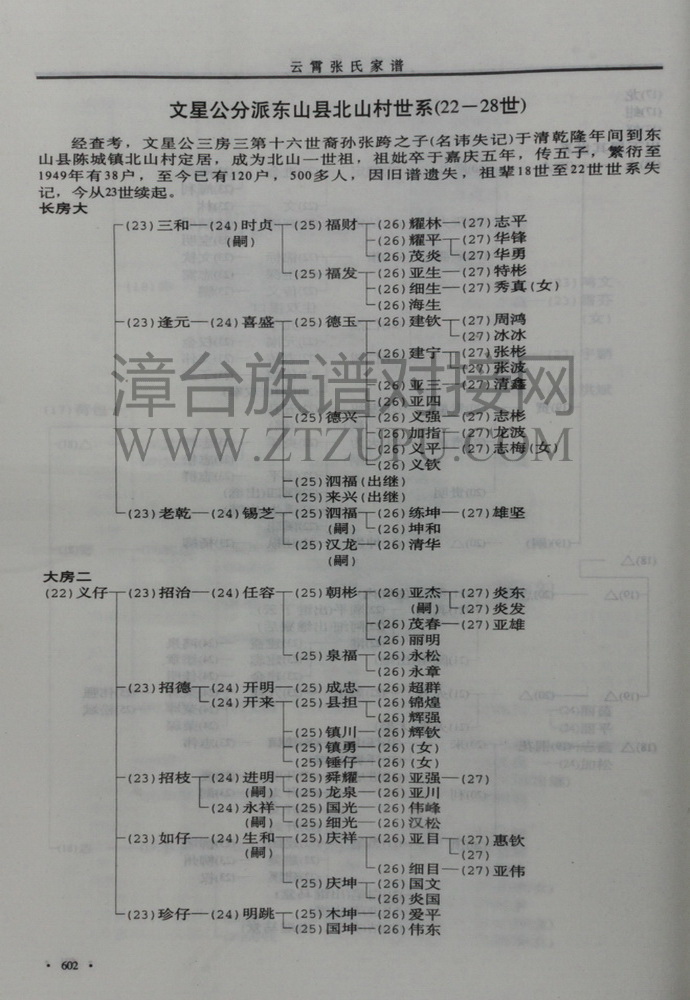 云霄张氏家谱
文星公分派东山县北山村世系(22－28世)
经查考，文星公三房三第十六世裔孙张跨之子(名讳失记)于清乾隆年间到东
山县陈城镇北山村定居，成为北山一世祖，祖妣卒于嘉庆五年，传五子，繁衍至
1949年有38户，至今已有120户，500多人，因旧谱遗失，祖辈18世至22世世系失
记，今从23世续起。
长房大
(23)三和 (24)时贞 (25)福财 (26)耀林 (27)志平
(嗣) (26)耀平 (27)华锋
(26)茂炎 (27)华勇
(25)福发 (26)亚生 (27)特彬
(26)细生 (27)秀真(女)
(26)海生
(23)逢元 (24)喜盛 (25)德玉 (26)建钦 (27)周鸿
(27)冰冰
(26)建宁 (27)张彬
(27)张波
(26)亚三 (27)清鑫
(26)亚四
(25)德兴 (26)义强 (27)志彬
(26)加指 (27)龙波
(26)义平 (27)志梅(女)
(26)义钦
(25)泗福(出继)
(25)来兴(出继)
(23)老乾 (24)锡芝 (25)泗福 (26)练坤 (27)雄坚
(嗣) (26)坤和
(25)汉龙 (26)清华
(嗣)
大房二
(22)义仔 (23)招治 (24)任容 (25)朝彬 (26)亚杰 (27)炎东
(嗣) (27)炎发
(26)茂春 (27)亚雄
(26)丽明
(25)泉福 (26)永松
(26)永章
(23)招德 (24)开明 (25)成忠 (26)超群
(24)开来 (25)县担 (26)锦煌
(26)辉强
(25)镇川 (26)辉钦
(25)镇勇 (26)(女)
(25)锤仔 (26)(女)
(23)招枝 (24)进明 (25)舜耀 (26)亚强 (27)
(嗣) (25)龙泉 (26)亚川
(24)永祥 (25)国光 (26)伟峰
(嗣) (25)细光 (26)汉松
(23)如仔 (24)生和 (25)庆祥 (26)亚目 (27)惠钦
(嗣) (27)
(26)细目 (27)亚伟
(25)庆坤 (26)国文
(26)炎国
(23)珍仔 (24)明跳 (25)木坤 (26)爱平
(25)国坤 (26)伟东
· 602 ·
漳台族谱对接网
WWW.ZTZUPU.COM